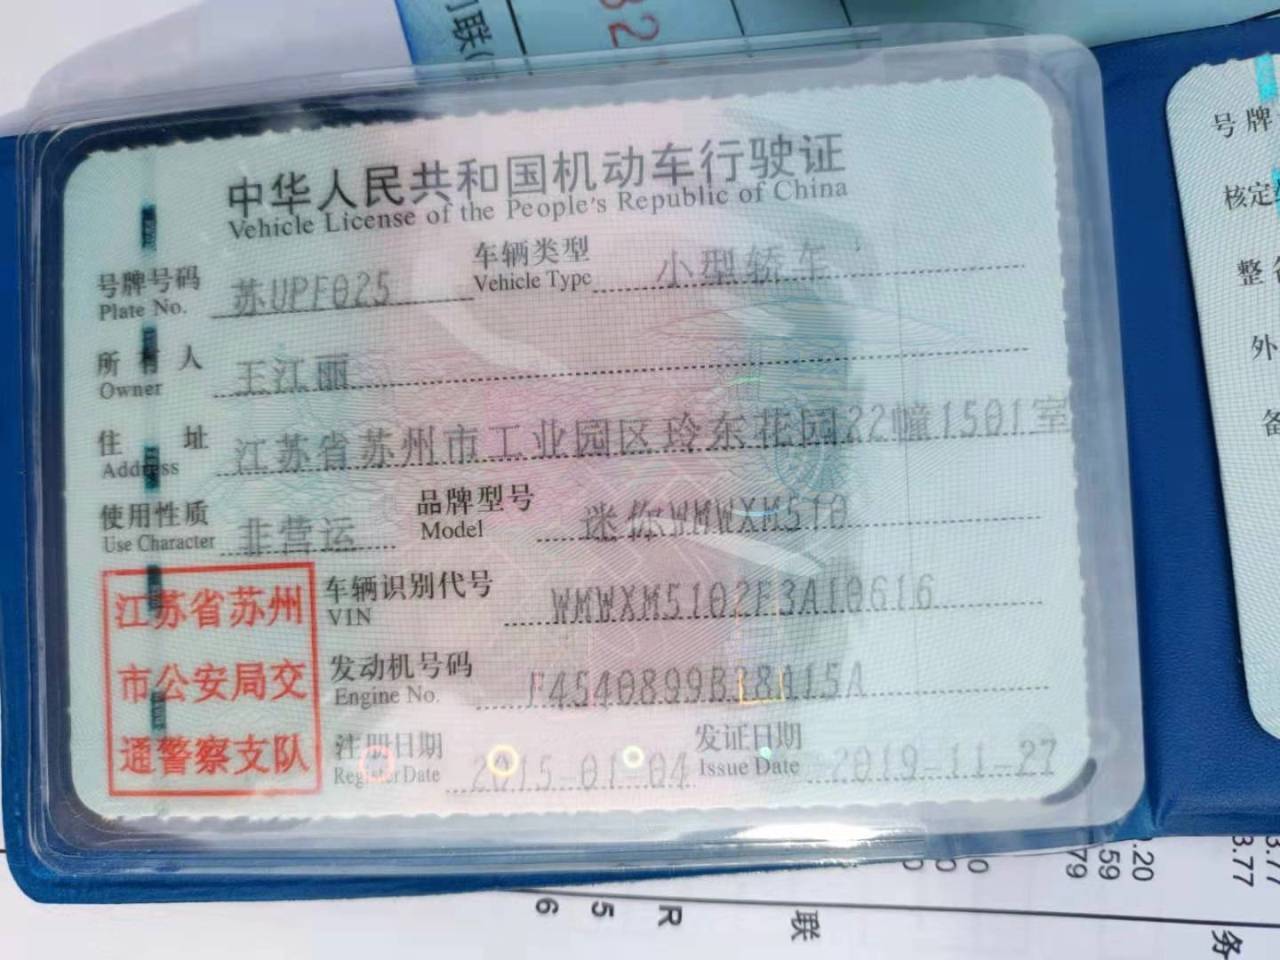 中华人民共和国机动车行驶证
Vehicle License of the People's Republic of China
号牌号码 苏UPF025 车辆类型 小型轿车
Plate No. Vehicle Type
所有人 王江丽
Owner
住址 江苏省苏州市工业园区玲东花园22幢1501室
Address
使用性质 非营运 品牌型号 迷你WMWXM510
Use Character Model
车辆识别代号 WMWXM5102F3A10616
VIN
发动机号码 F4540899B38A15A
Engine No.
注册日期 2015-01-04 发证日期 2019-11-27
Register Date Issue Date
江苏省苏州
市公安局交
通警察支队
号牌
核定
整
外
备
32
联
.20
.59
79
3.77
3.77
6
5
R
联
务